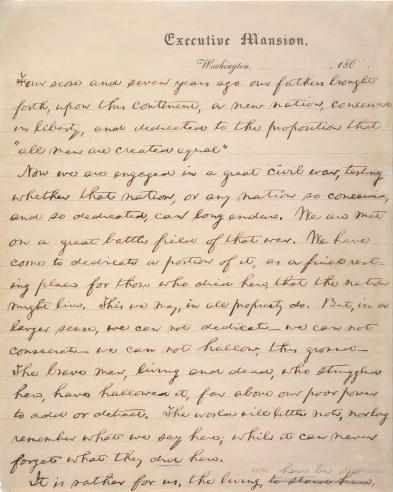 Executive Mansion,
Washington, , 186 .
Four score and seven years ago our fathers brought
forth, upon this continent, a new nation, conceived
in liberty, and dedicated to the proposition that
"all men are created equal"
Now we are engaged in a great civil war, testing
whether that nation, or any nation so conceived,
and so dedicated, can long endure. We are met
on a great battle field of that war. We have
come to dedicate a portion of it, as a final rest-
ing place for those who died here, that the nation
might live. This we may, in all propriety do. But, in a
larger sense, we can not dedicate— we can not
consecrate— we can not hallow, this ground—
The brave men, living and dead, who struggled
here, have hallowed it, far above our poor power
to add or detract. The world will little note, nor long
remember what we say here; while it can never
forget what they did here.
we here be
It is rather for us, the living, to stand here,